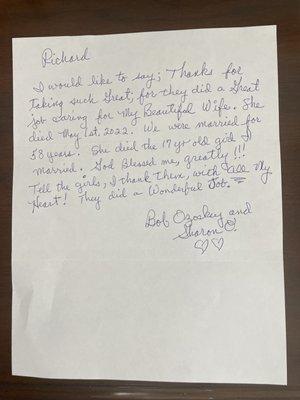 Richard
I would like to say; Thanks for
taking such Great, for they did a Great
job caring for My Beautiful Wife. She
died May 1st, 2022. We were married for
58 years. She died the 17 yr old girl I
married. God Blessed me, greatly!!!
Tell the girls, I thank them, with all My
Heart! They did a Wonderful Job.
Bob and
Sharon O.